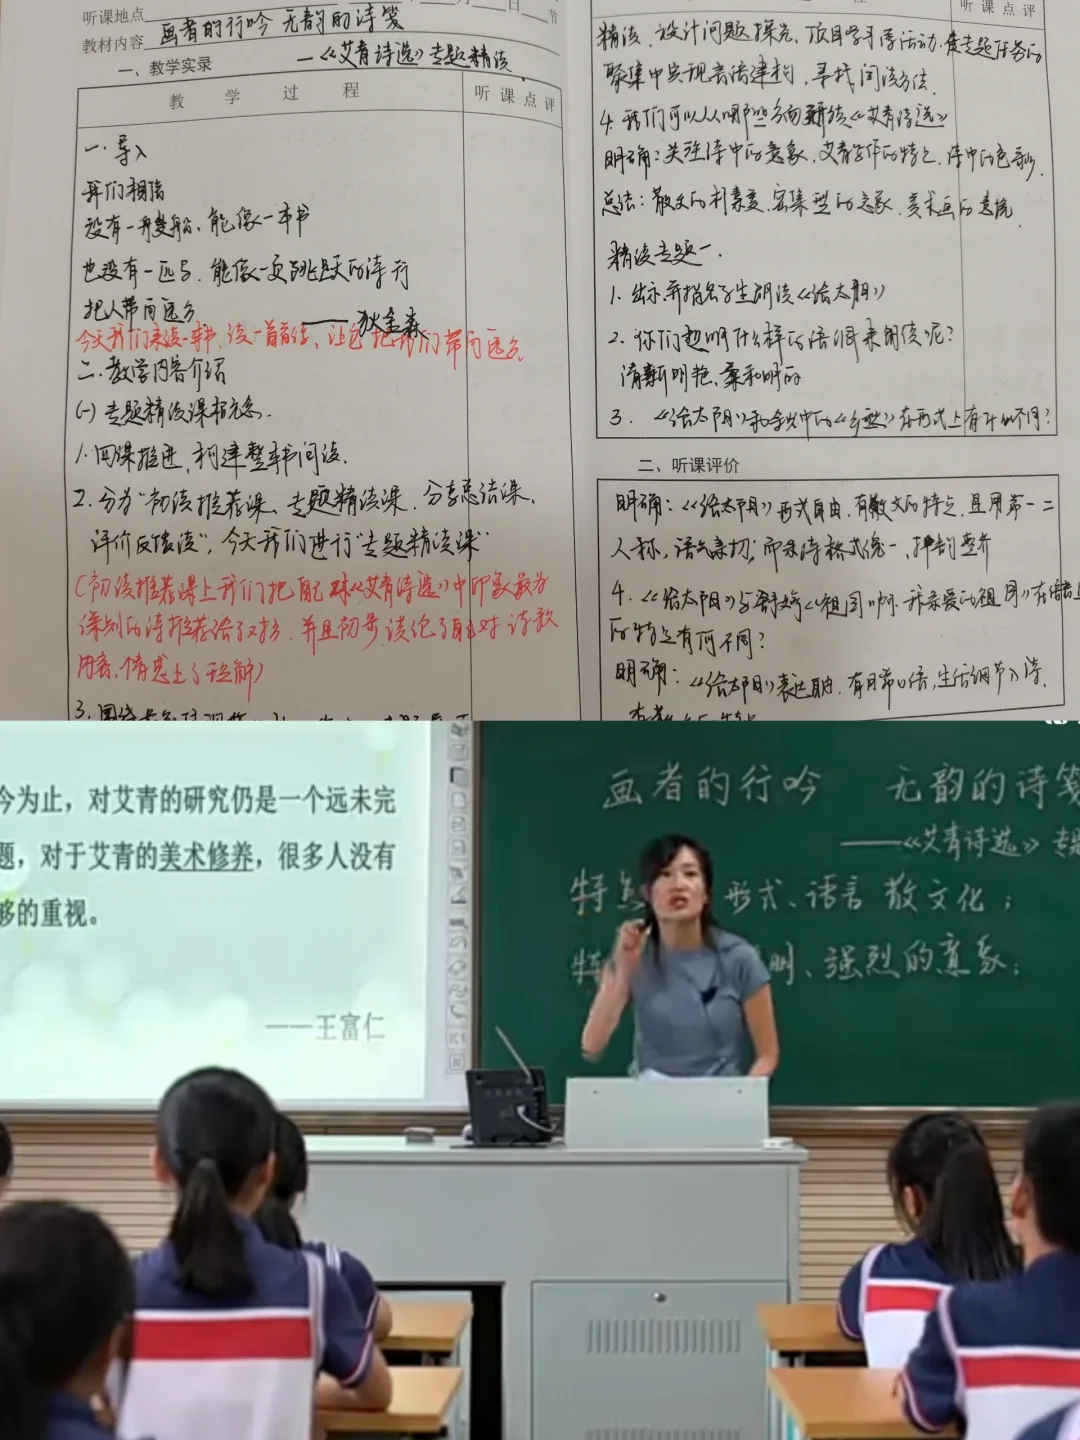 听课地点 月 日 节
教材内容 画者的行吟 无韵的诗笺
一、教学实录 —《艾青诗选》专题精读
教 学 过 程 听课点评
一、导入
我们相信
没有一艘船，能像一本书
也没有一匹马，能像一页跳跃的诗行
把人带向远方
——狄金森
今天我们来读一本书，读一首首诗，让它把我们带向远方
二、教学内容介绍
(一) 专题精读课概念.
1. 四课推进，构建整本书阅读.
2. 分为"初读推荐课、专题精读课、分享总结课、
评价反馈读"，今天我们进行"专题精读课"
(初读推荐课上我们把《艾青诗选》中印象最为
深刻的诗推荐给了对方，并且初步谈论了对诗歌
内容、情感上的理解)
听课点评
精读、设计问题探究、项目学习等活动，使专题任务的
聚集中实现言语建构，寻找阅读方法.
4. 我们可以从哪些方面解读《艾青诗选》
明确：关注诗中的意象，艾青写作的特色，诗中的色彩.
总结：散文的朴素美，密集型的意象，美术画的意境.
精读专题一.
1. 出示并指名学生朗读《给太阳》
2. 你们想用什么样的语调来朗读呢？
清新明艳、柔和明白
3. 《给太阳》和余光中的《乡愁》在形式上有什么不同？
二、听课评价
明确：《给太阳》形式自由，有散文的特点，且用第一二
人称，语气亲切；而余诗格式统一，押韵整齐
4. 《给太阳》与舒婷《祖国啊，我亲爱的祖国》在语言上
的特点有何不同？
明确：《给太阳》表达自由，有日常口语，生活细节入诗.
今为止，对艾青的研究仍是一个远未完
题，对于艾青的美术修养，很多人没有
够的重视。
——王富仁
画者的行吟 无韵的诗笺
——《艾青诗选》专题
特点 形式、语言散文化；
特 明、强烈的意象；